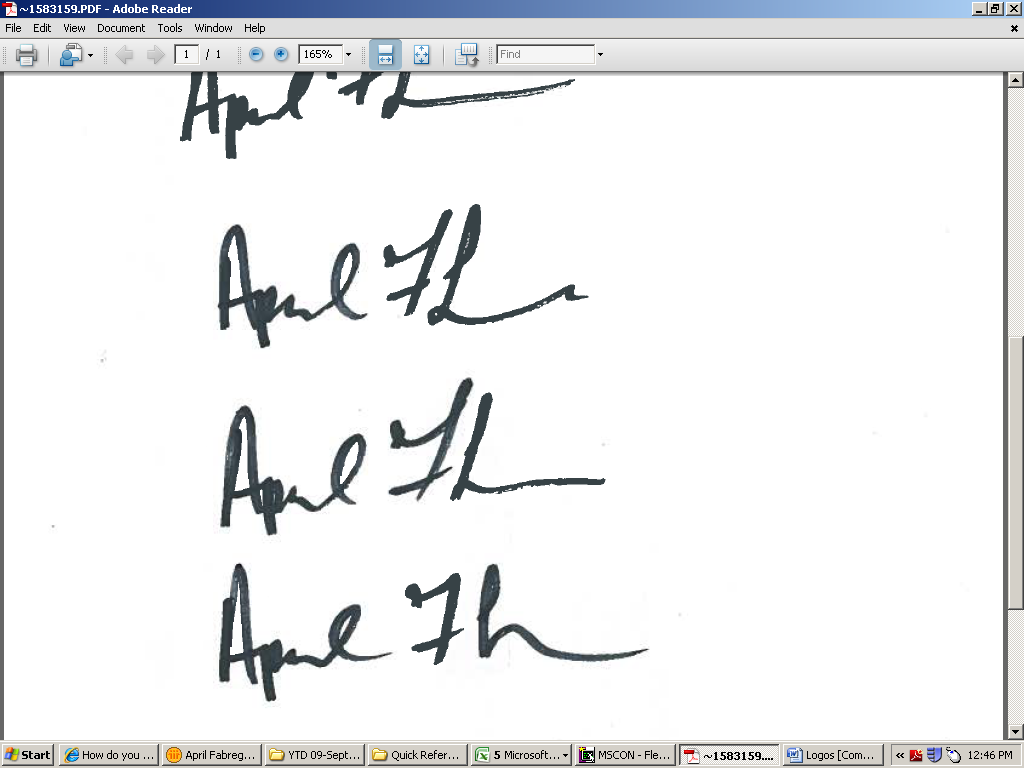 ~1583159.PDF - Adobe Reader
File Edit View Document Tools Window Help
1 / 1 165% Find
April
April
April
April
Start How do you ... April Fabreg... YTD 09-Sept... Quick Refer... 5 Microsoft... MSCON - Fle... ~1583159.... Logos [Com... « 12:46 PM